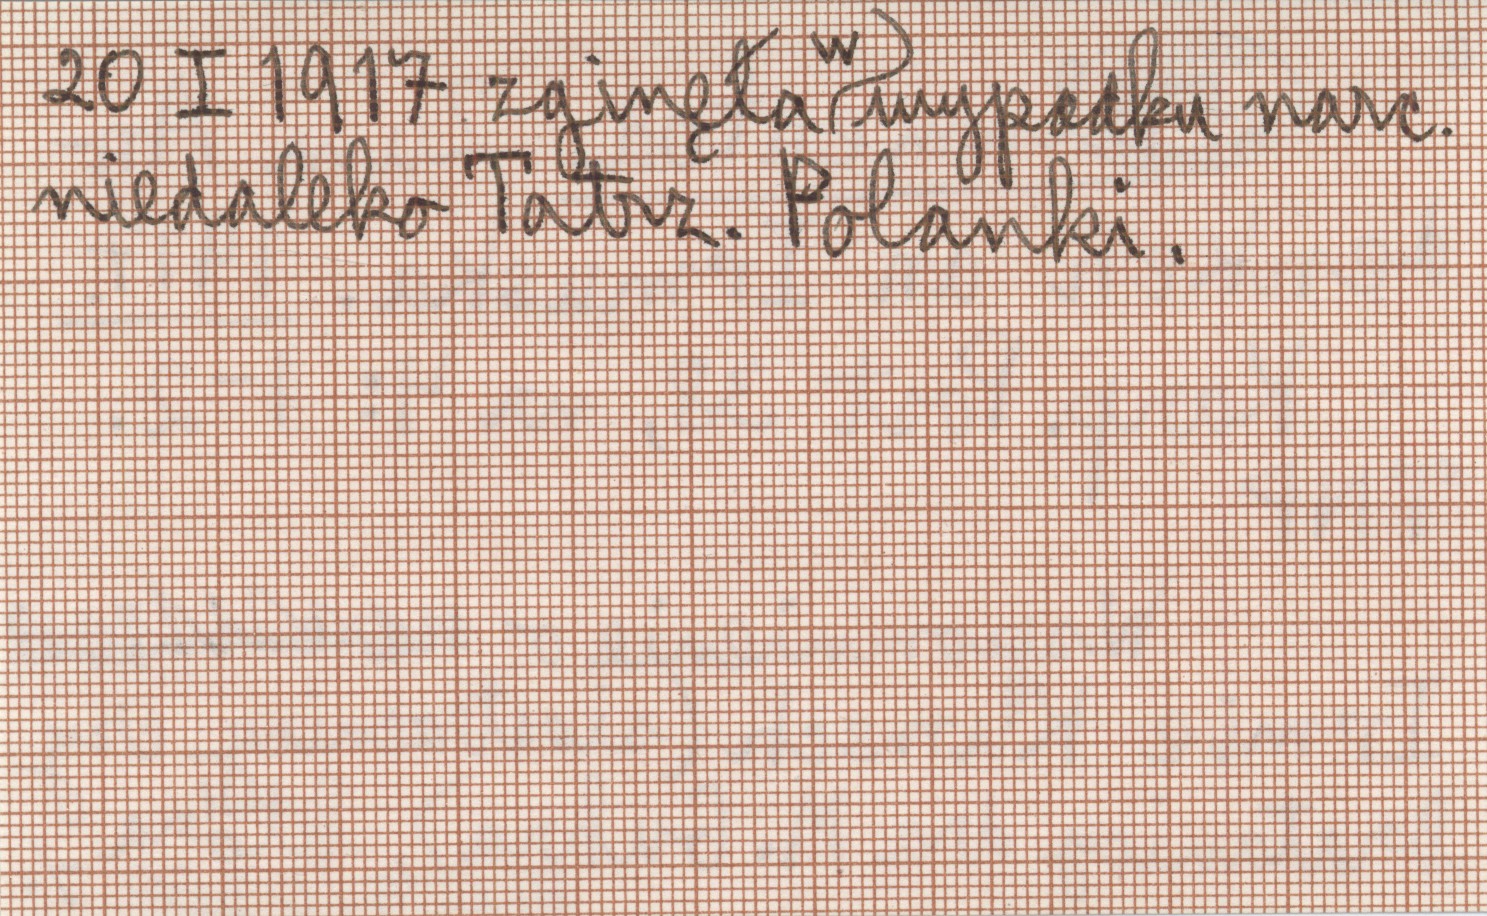 20 I 1917 zginęła w wypadku narc.
niedaleko Tatrz. Polanki.